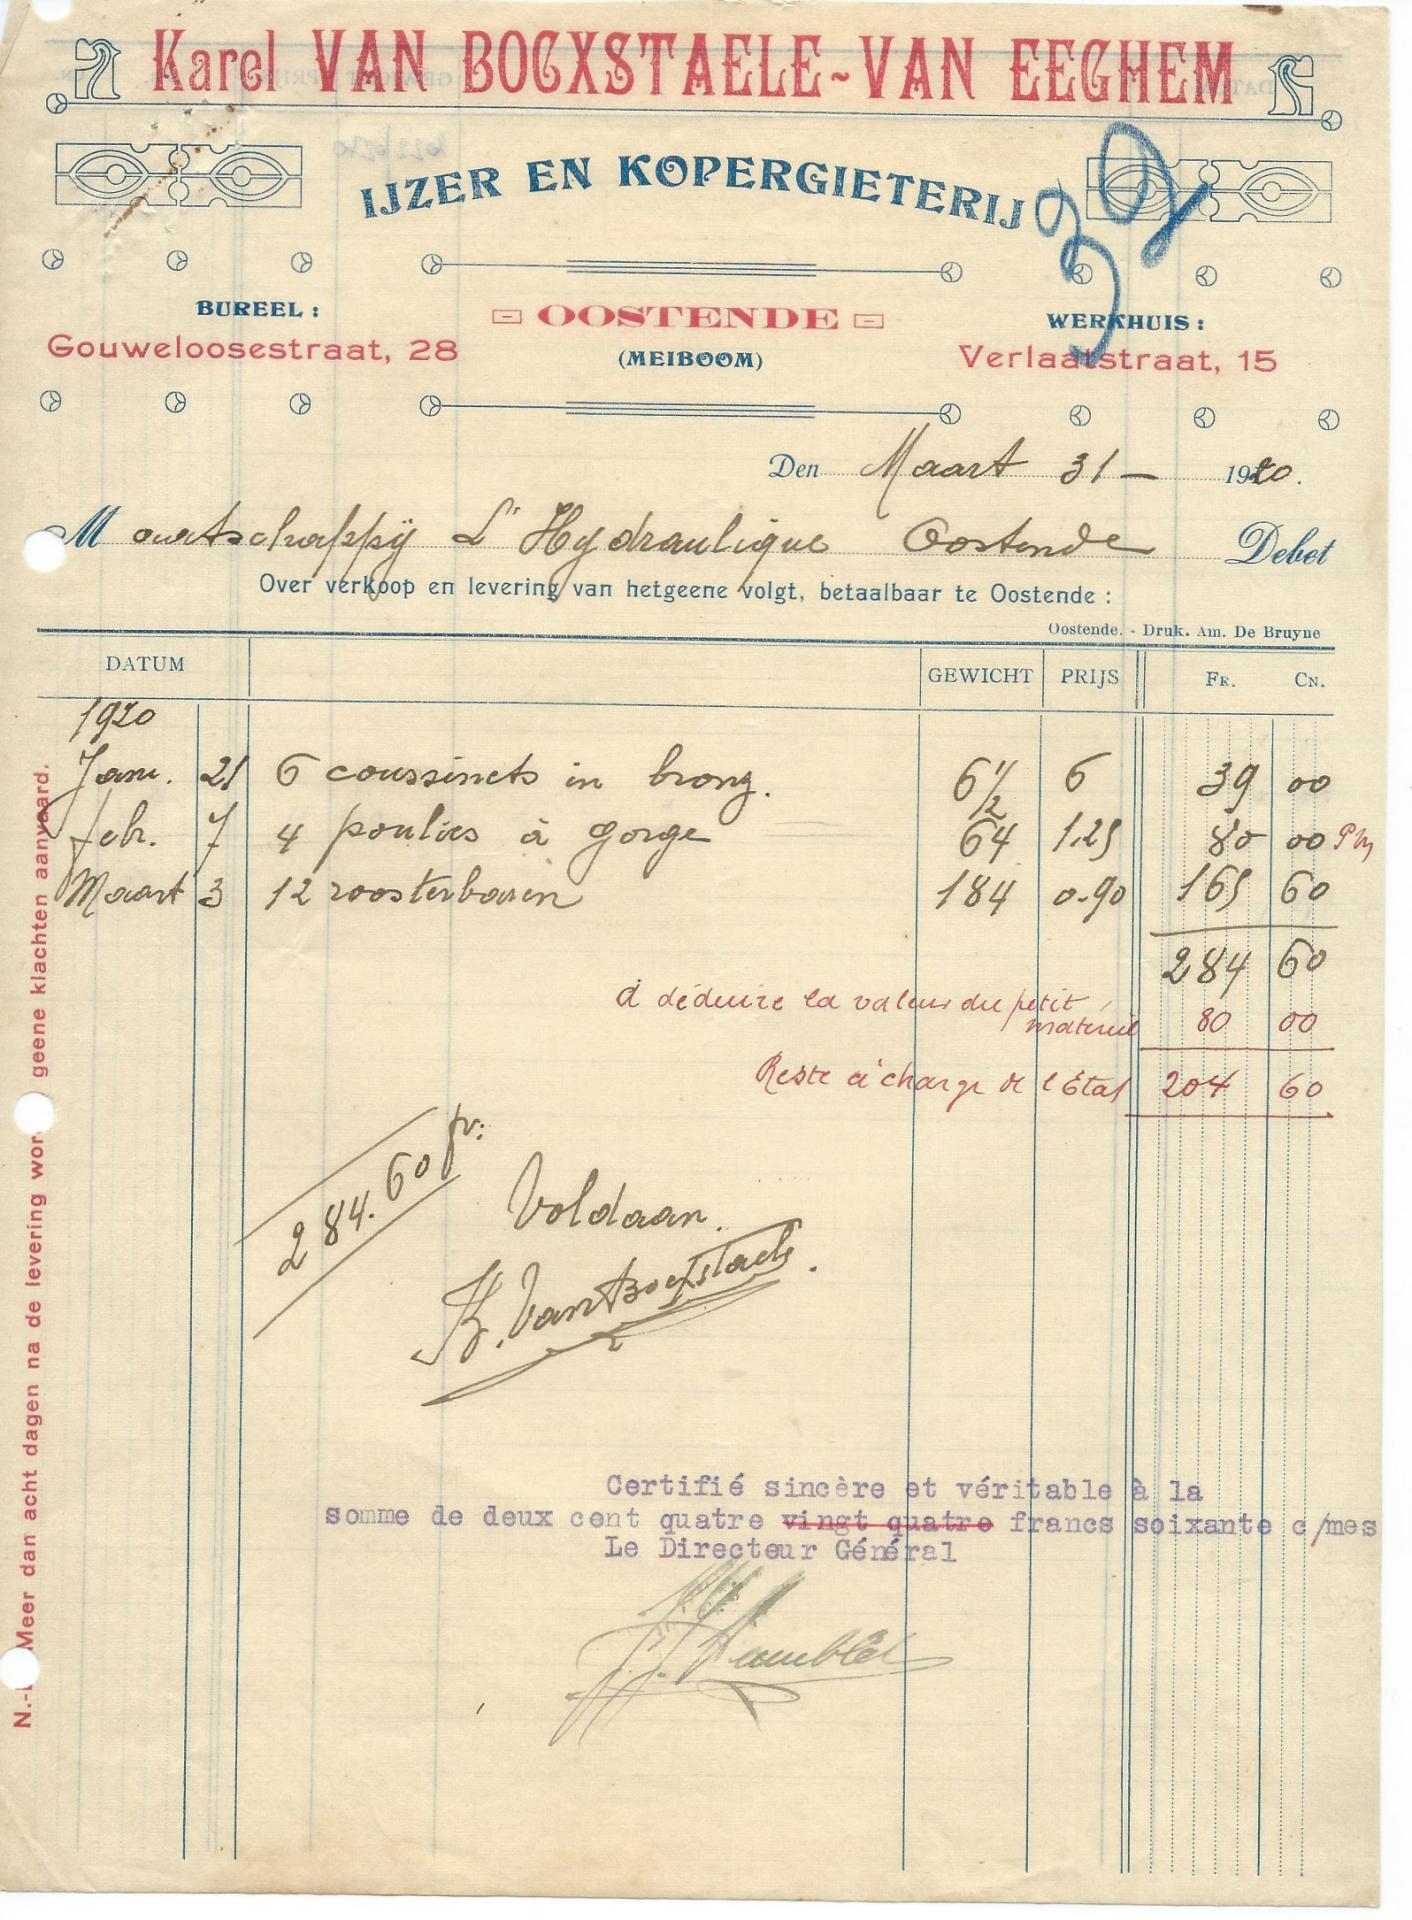 Karel VAN BOCXSTAELE-VAN EEGHEM
IJZER EN KOPERGIETERIJ
39
BUREEL :
Gouweloosestraat, 28
OOSTENDE
(MEIBOOM)
WERKHUIS :
Verlaatstraat, 15
Den Maart 31 – 1920.
Maatschappij L'Hydraulique Oostende Debet
Over verkoop en levering van hetgeene volgt, betaalbaar te Oostende :
Oostende. - Druk. Am. De Bruyne
DATUM GEWICHT PRIJS FR. CN.
1920
Janu. 21 6 coussinets in bronz. 6 1/2 6 39 00
Febr. 7 4 poulies à gorge 64 1.25 80 00 PM
Maart 3 12 roosterbaren 184 0.90 165 60
284 60
à déduire la valeur du petit
matériel 80 00
Reste à charge de l'Etat 204 60
284.60 fr:
Voldaan.
K. Van Bocxstaele.
Certifié sincère et véritable à la
somme de deux cent quatre vingt quatre francs soixante c/mes
Le Directeur Général
N.-B. Meer dan acht dagen na de levering word geene klachten aanvaard.